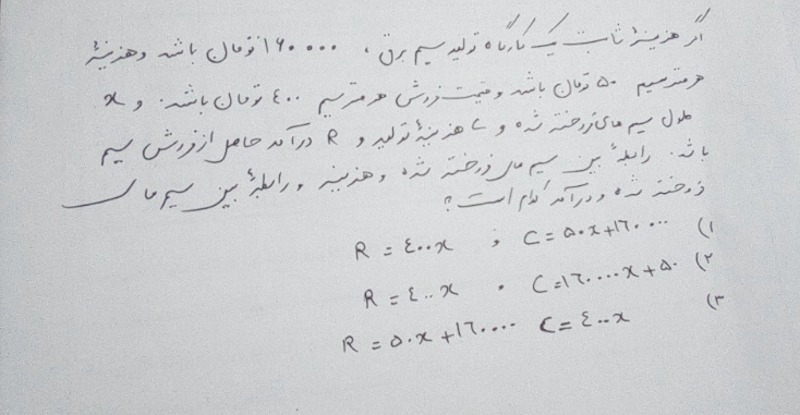 اگر هزینهٔ ثابت یک کارگاه تولید سیم برق، ۱۶۰۰۰۰ تومان باشد و هزینهٔ
هر متر سیم ۵۰ تومان باشد و قیمت فروش هر متر سیم ۴۰۰ تومان باشد. و x
طول سیم های فروخته شده و C هزینهٔ تولید و R درآمد حاصل از فروش سیم
باشد. رابطهٔ بین سیم های فروخته شده و هزینه و رابطهٔ بین سیم های
فروخته شده و درآمد کدام است؟
۱) C = ۵۰x + ۱۶۰۰۰۰ و R = ۴۰۰x
۲) C = ۱۶۰۰۰۰x + ۵۰ و R = ۴۰۰x
۳) C = ۴۰۰x R = ۵۰x + ۱۶۰۰۰۰